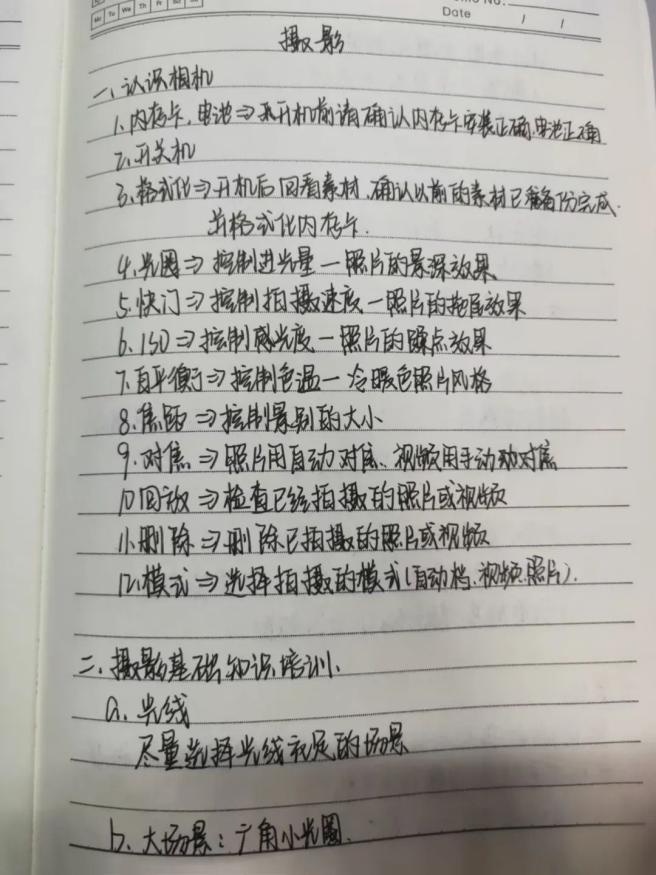 Memo No.
Mo Tu We Th Fr Sa Su
Date / /
摄影
一、认识相机
1、内存卡,电池⇒开机前请确认内存卡安装正确,电池正确
2、开关机
3、格式化⇒开机后回看素材,确认以前的素材已备份完成.
并格式化内存卡.
4、光圈⇒控制进光量—照片的景深效果.
5、快门⇒控制拍摄速度—照片的拖尾效果
6、ISO⇒控制感光度—照片的躁点效果
7、白平衡⇒控制色温—冷暖色照片风格
8、焦距⇒控制景别的大小
9、对焦⇒照片用自动对焦、视频用手动对焦
10回放⇒检查已经拍摄的照片或视频
11、删除⇒删除已拍摄的照片或视频
12、模式⇒选择拍摄的模式(自动档、视频、照片).
二、摄影基础知识培训.
a、光线
尽量选择光线充足的场景
b、大场景:广角小光圈.